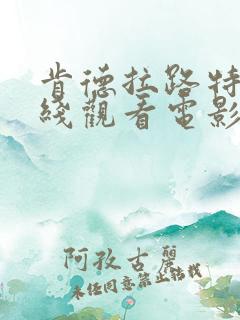 肯德拉路特
綫觀看電影
阿孜古麗
未经同意禁止转载